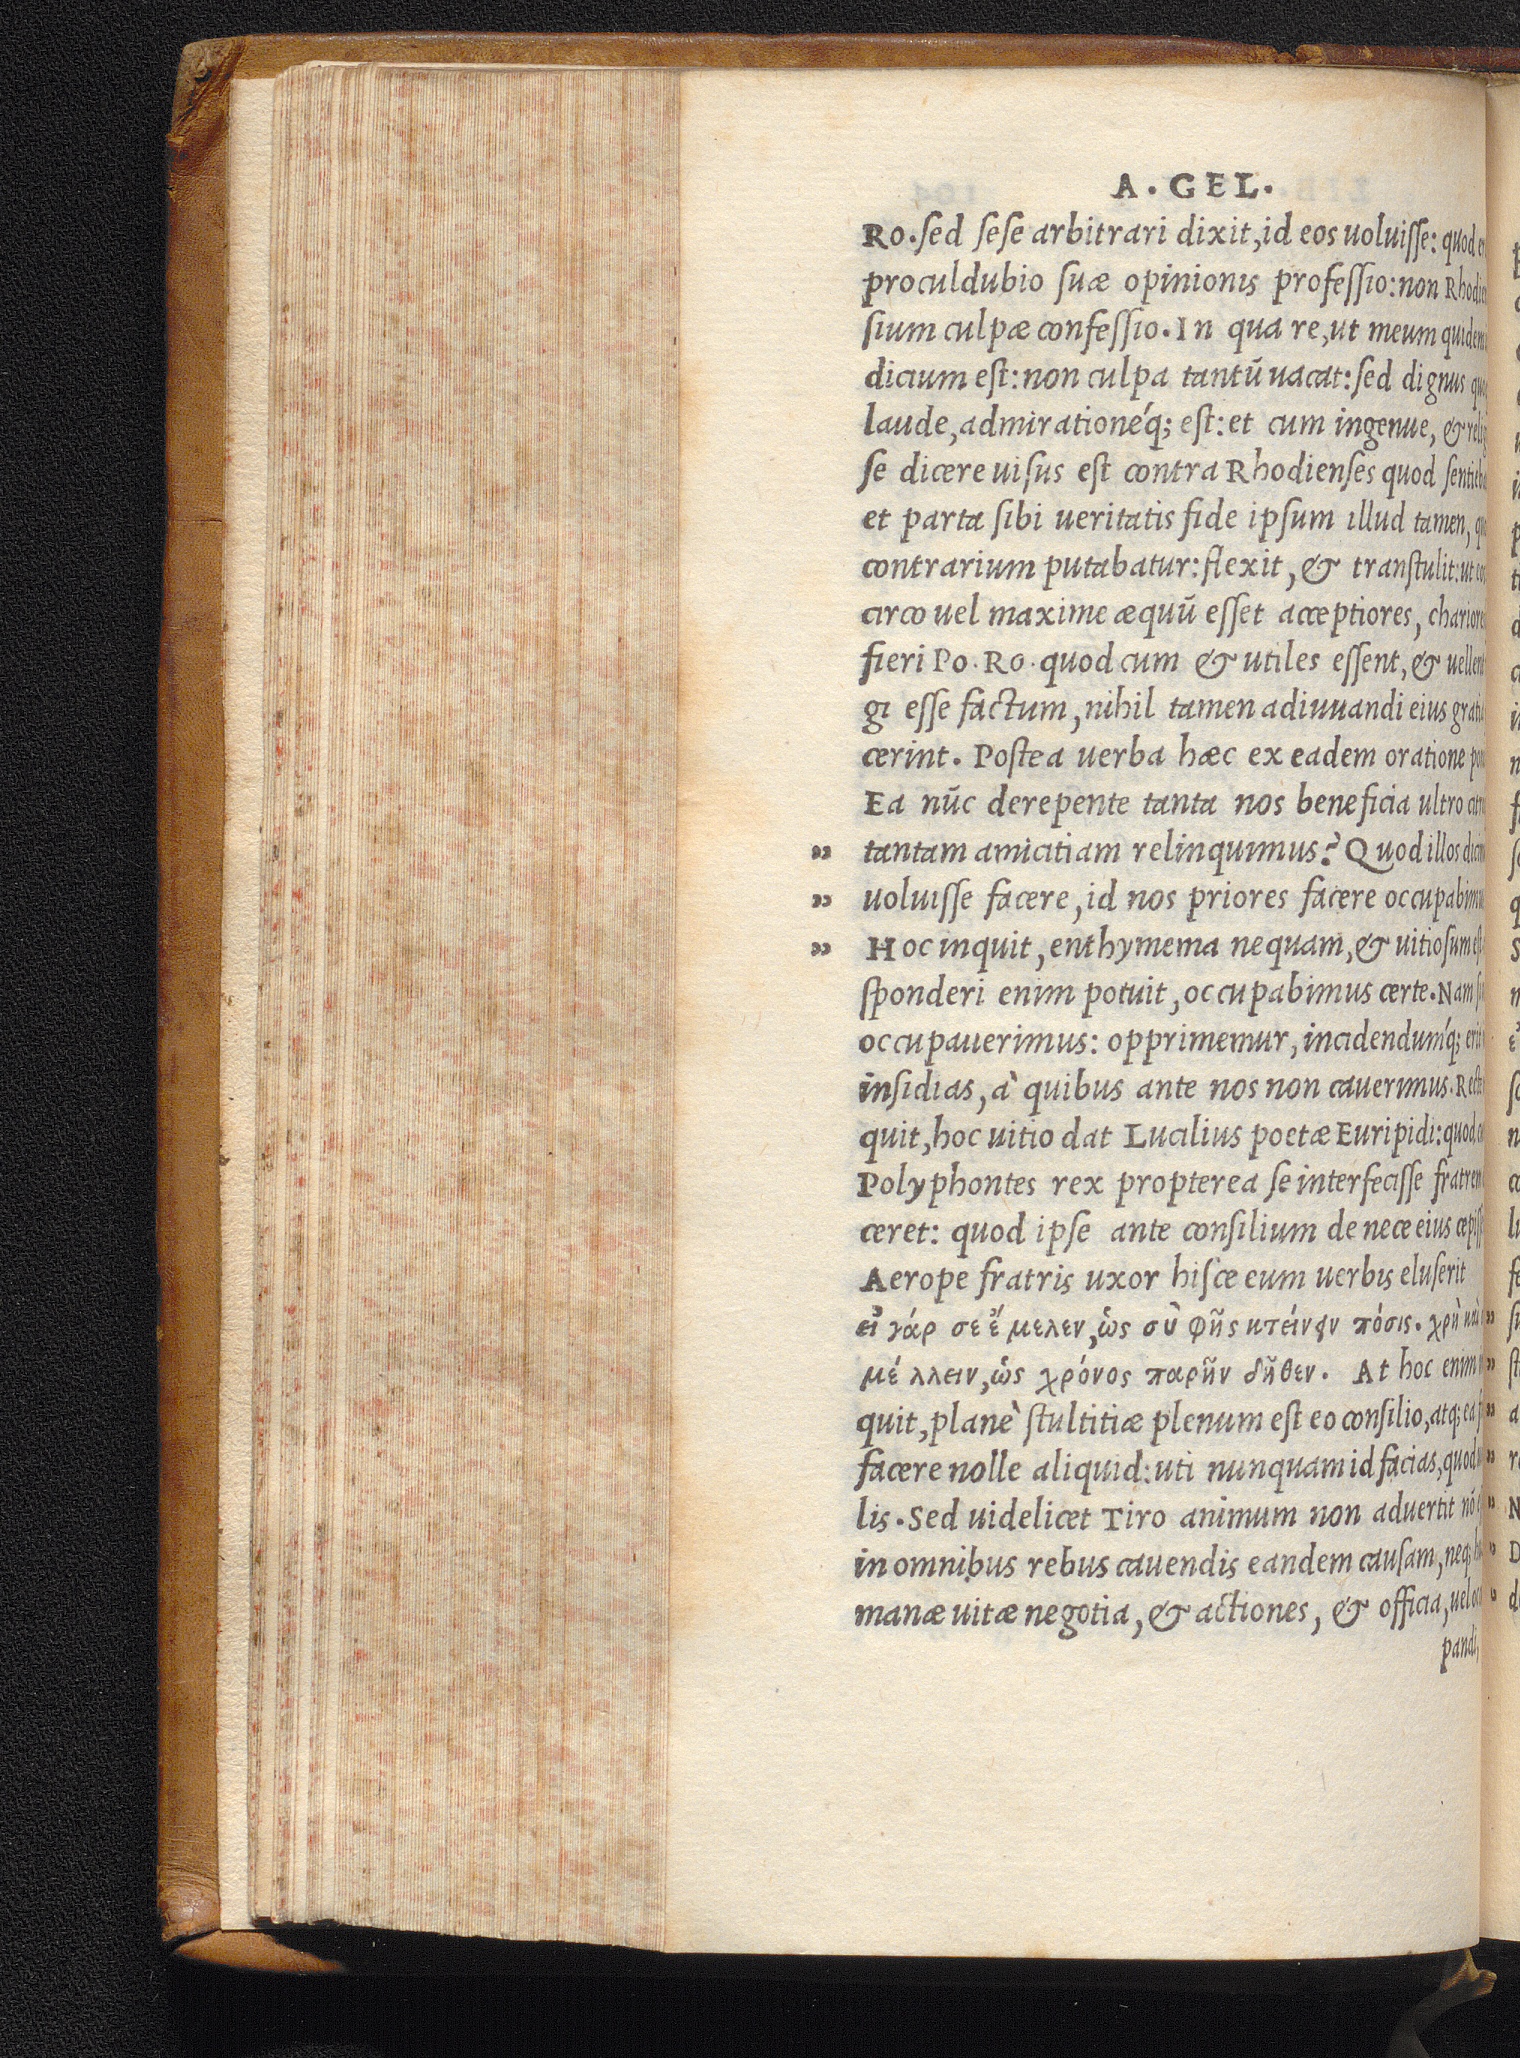 A. GEL.
RO. sed sese arbitrari dixit, id eos uoluisse: quod
proculdubio suæ opinionis professio: non
sium culpæ confessio. In qua re, ut meum quidem
dicium est: non culpa tantū uacat: sed dignus
laude, admirationéq; est: et cum ingenue, &
se dicere uisus est contra Rhodienses quod
et parta sibi ueritatis fide ipsum illud tamen,
contrarium putabatur: flexit, & transtulit: ut
circo uel maxime æquū esset acceptiores,
fieri Po. Ro. quod cum & utiles essent, &
gi esse factum, nihil tamen adiuuandi eius
cerint. Postea uerba hæc ex eadem oratione
Ea nūc derepente tanta nos beneficia ultro
„ tantam amicitiam relinquimus? Quod illos
„ uoluisse facere, id nos priores facere
„ Hoc inquit, enthymema nequam, & uitiosum
sponderi enim potuit, occupabimus certe. Nam
occupauerimus: opprimemur, incidendumq́;
insidias, à quibus ante nos non cauerimus.
quit, hoc uitio dat Lucilius poetæ Euripidi: quod
Polyphontes rex propterea se interfecisse
ceret: quod ipse ante consilium de nece eius
Aerope fratris uxor hisce eum uerbis eluserit
εἰ γάρ σε ἔμελεν, ὡς σὺ φῂς κτείνειν πόσις. χρὴ
μέλλειν, ὡς χρόνος παρῆν δῆθεν. At hoc enim
quit, planè stultitiæ plenum est eo consilio, atq; ea
facere nolle aliquid: uti nunquam id facias, quod
lis. Sed uidelicet Tiro animum non aduertit nō
in omnibus rebus cauendis eandem causam, neq;
manæ uitæ negotia, & actiones, & officia, uel
pandi,